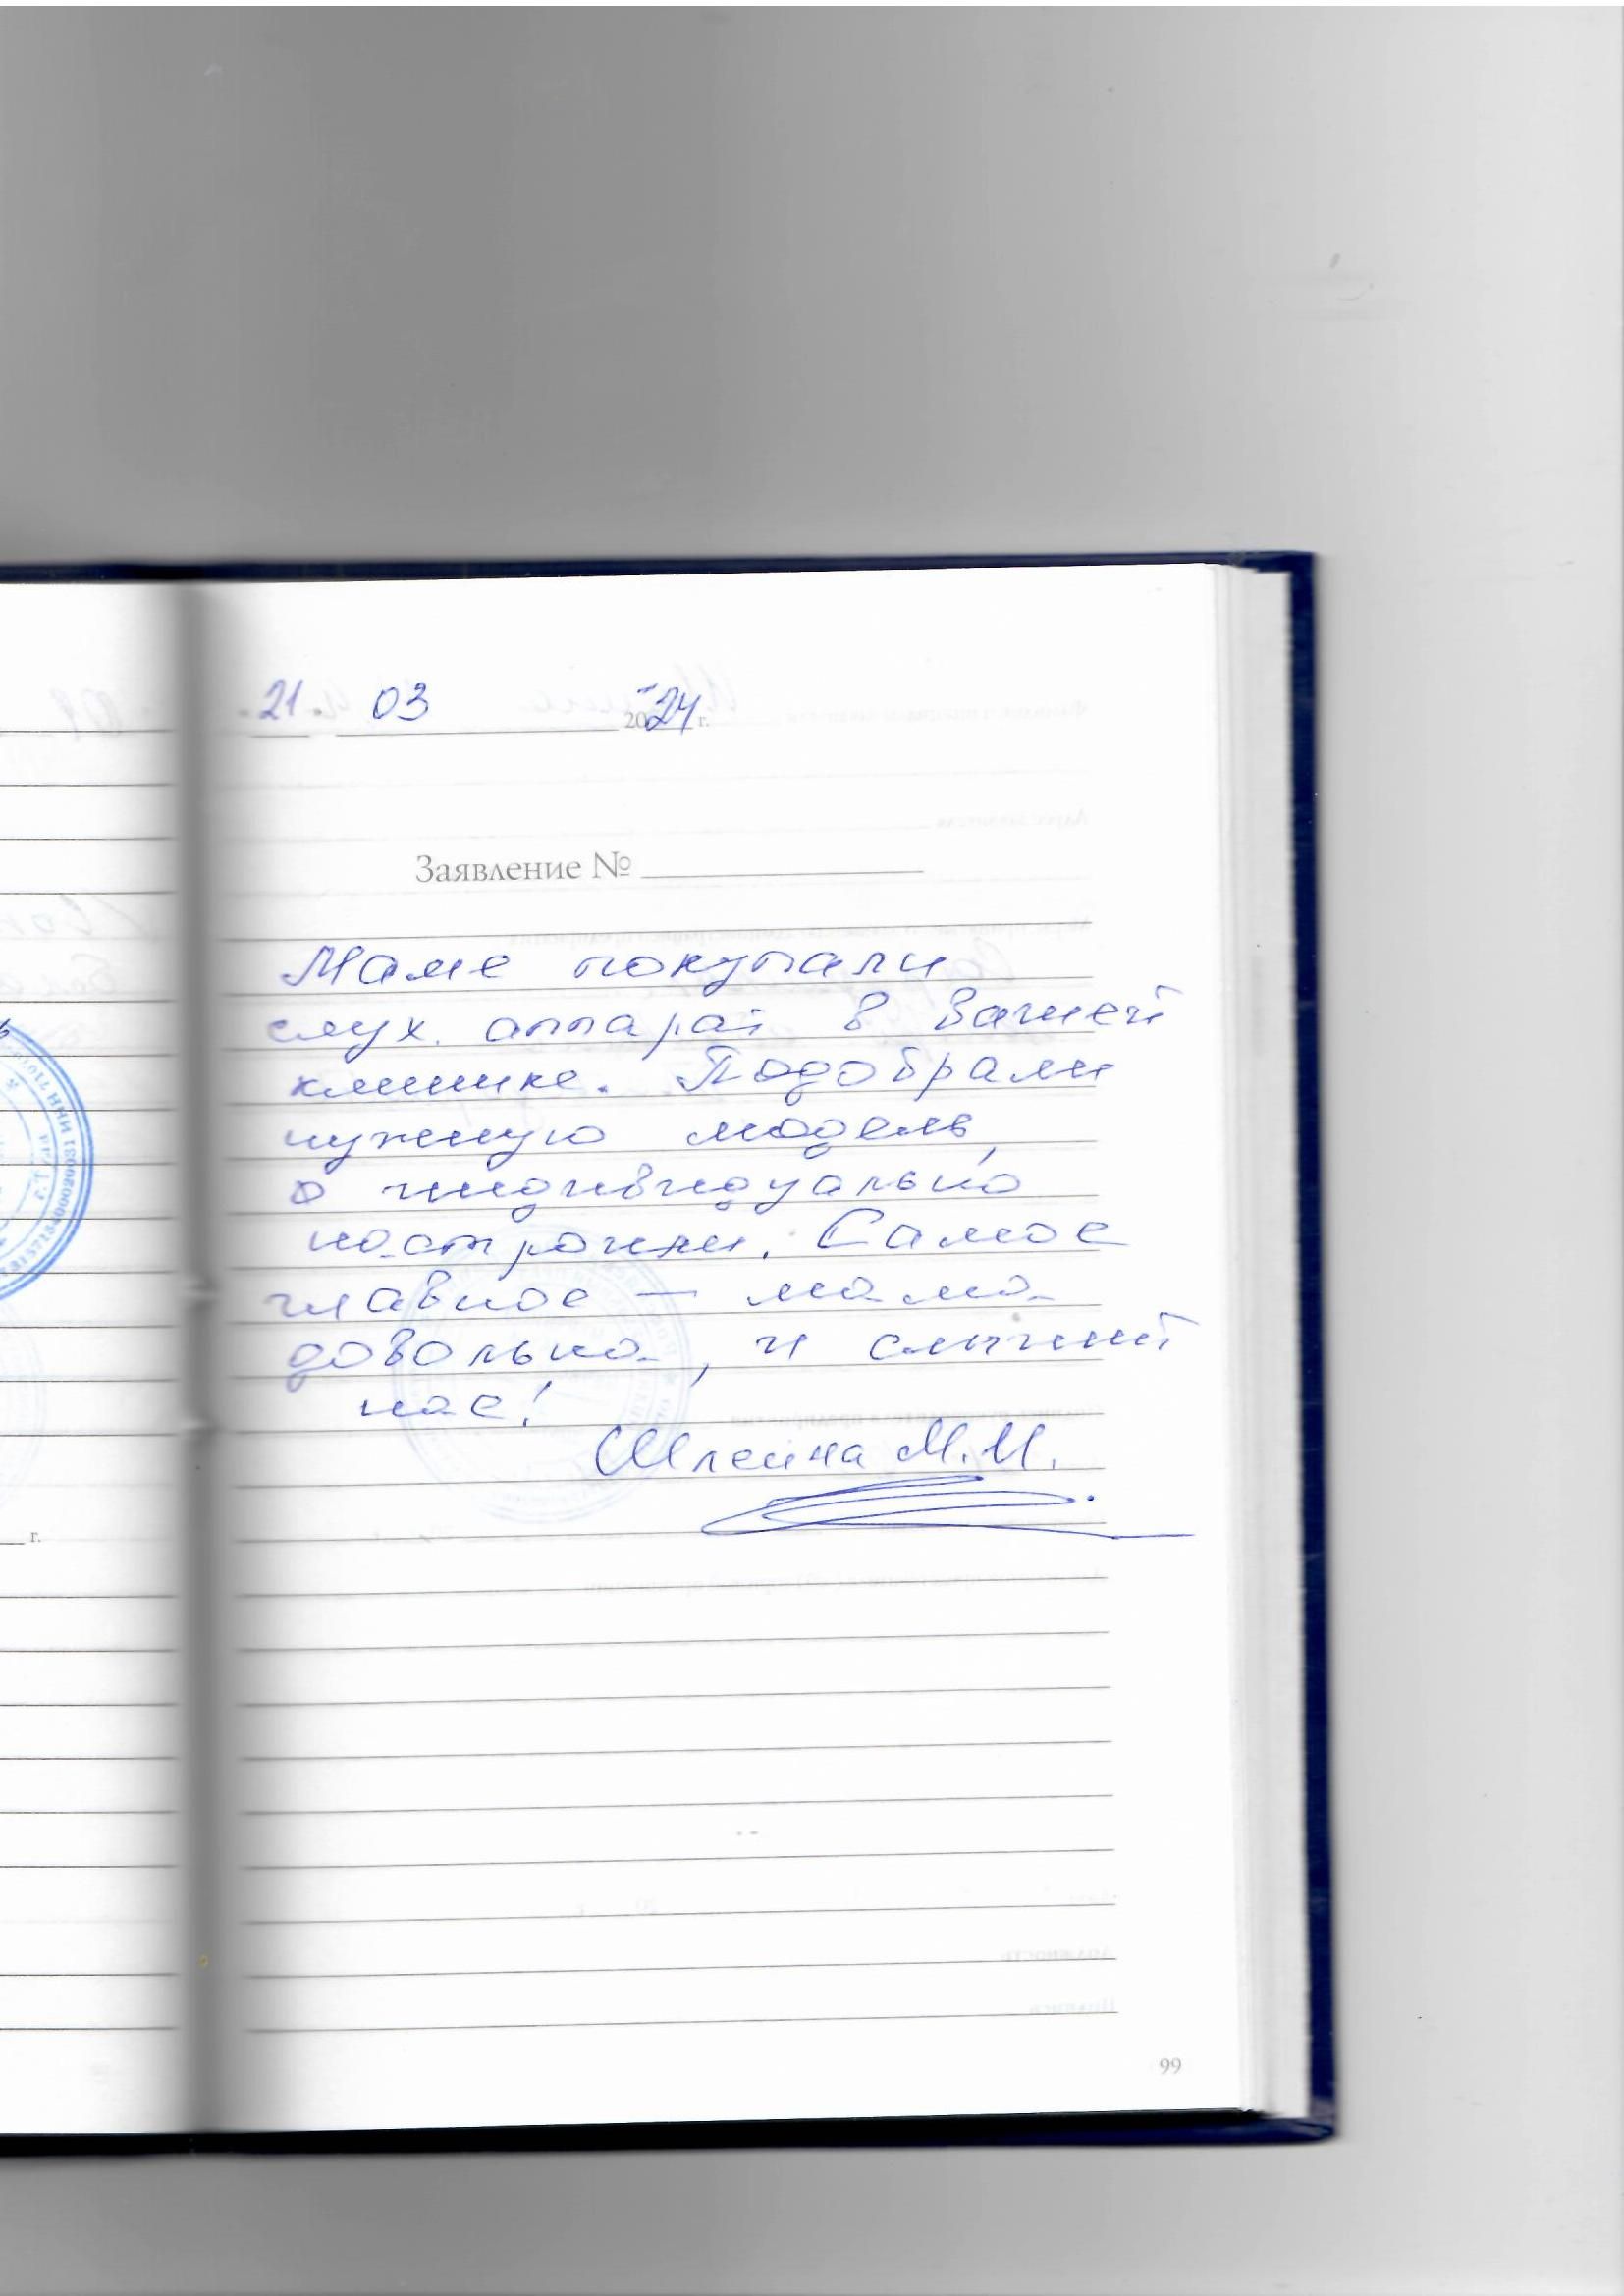 21. 03 2024 г.
Заявление №
Маме покупали
слух. аппарат в Вашей
клинике. Подобрали
нужную модель,
индивидуально
настроили. Самое
главное — мама
довольна, и слышит
нас!
Шлеина М.И.
г.
99